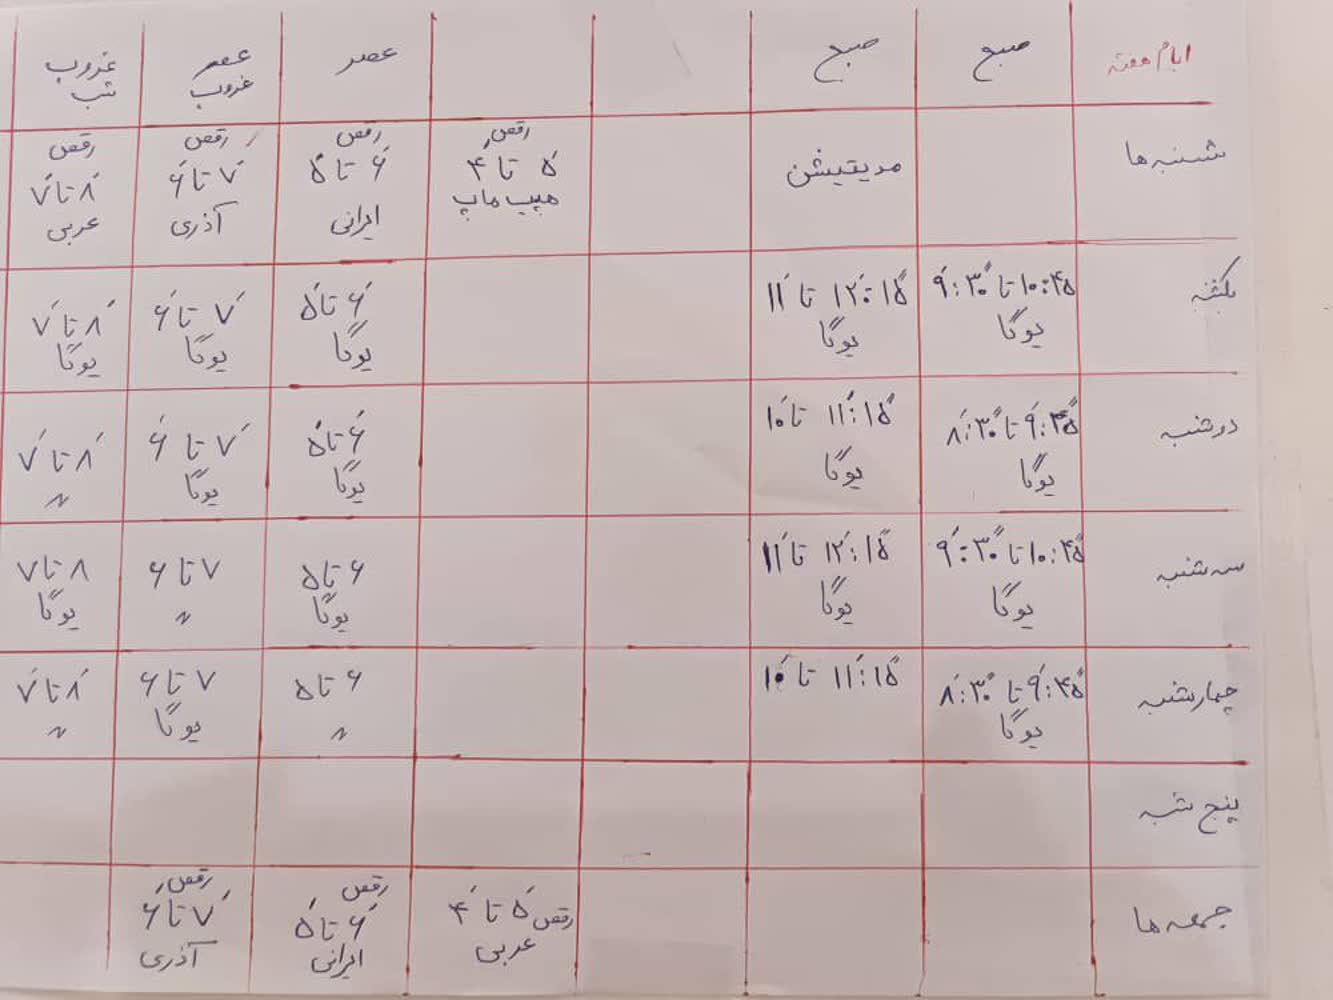 ایام هفته صبح صبح عصر عصر غروب غروب شب
شنبه ها مدیتیشن رقص ۵ تا ۴ هیپ هاپ رقص ۶ تا ۵ ایرانی رقص ۷ تا ۶ آذری رقص ۸ تا ۷ عربی
یکشنبه ۱۰:۴۵ تا ۹:۳۰ یوگا ۱۲:۱۵ تا ۱۱ یوگا ۶ تا ۵ یوگا ۷ تا ۶ یوگا ۸ تا ۷ یوگا
دوشنبه ۹:۴۵ تا ۸:۳۰ یوگا ۱۱:۱۵ تا ۱۰ یوگا ۶ تا ۵ یوگا ۷ تا ۶ یوگا ۸ تا ۷ 〃
سه شنبه ۱۰:۴۵ تا ۹:۳۰ یوگا ۱۲:۱۵ تا ۱۱ یوگا ۶ تا ۵ یوگا ۷ تا ۶ 〃 ۸ تا ۷ یوگا
چهارشنبه ۹:۴۵ تا ۸:۳۰ یوگا ۱۱:۱۵ تا ۱۰ ۶ تا ۵ 〃 ۷ تا ۶ یوگا ۸ تا ۷ 〃
پنج شنبه
جمعه ها رقص ۵ تا ۴ عربی رقص ۶ تا ۵ ایرانی رقص ۷ تا ۶ آذری